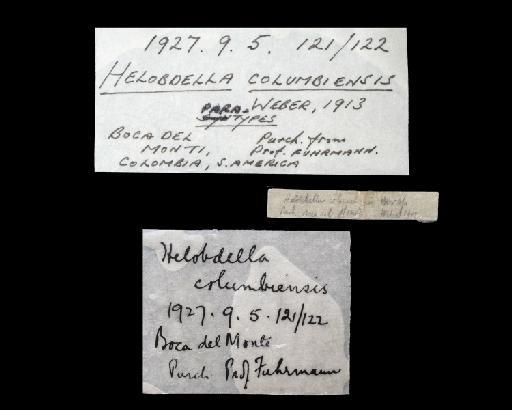 1927. 9. 5. 121/122
HELOBDELLA COLUMBIENSIS
WEBER, 1913
PARA-
TYPES
BOCA DEL MONTI,
COLOMBIA, S. AMERICA
Purch. from
Prof. FUHRMANN.
Helobdella
Helobdella
columbiensis
1927. 9. 5. 121/122
Boca del Monte
Purch. Prof Fuhrmann